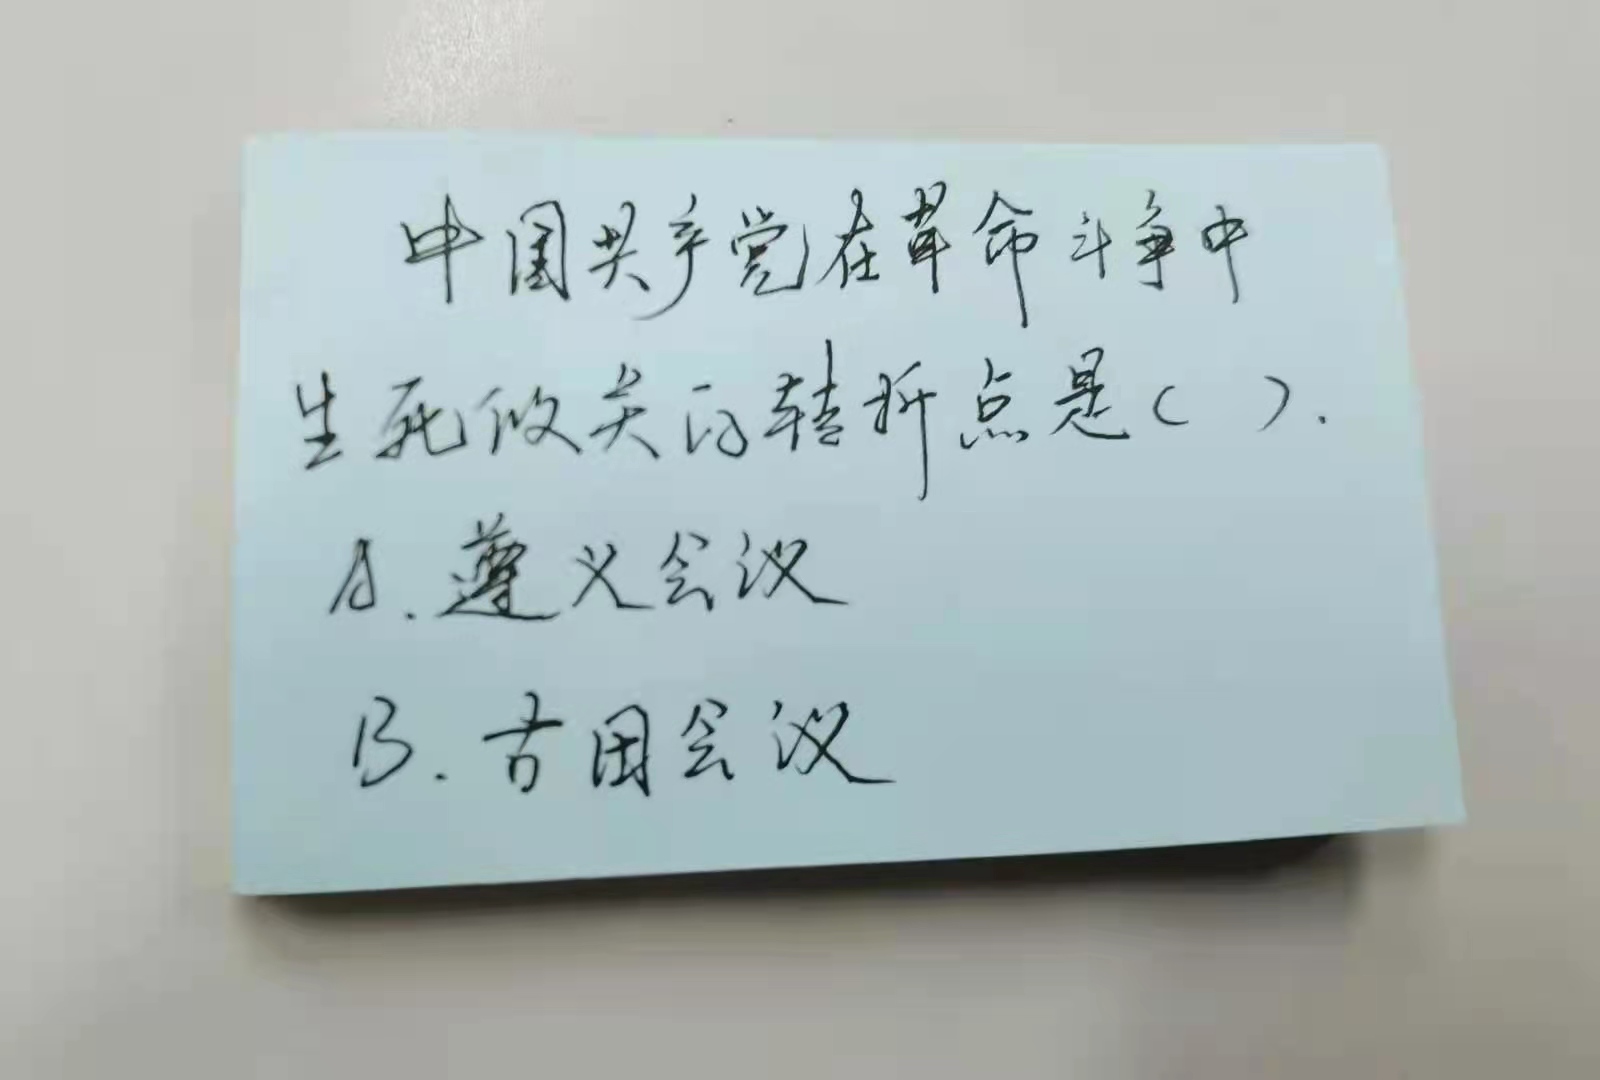 中国共产党在革命斗争中
生死攸关的转折点是( ).
A.遵义会议
B.古田会议